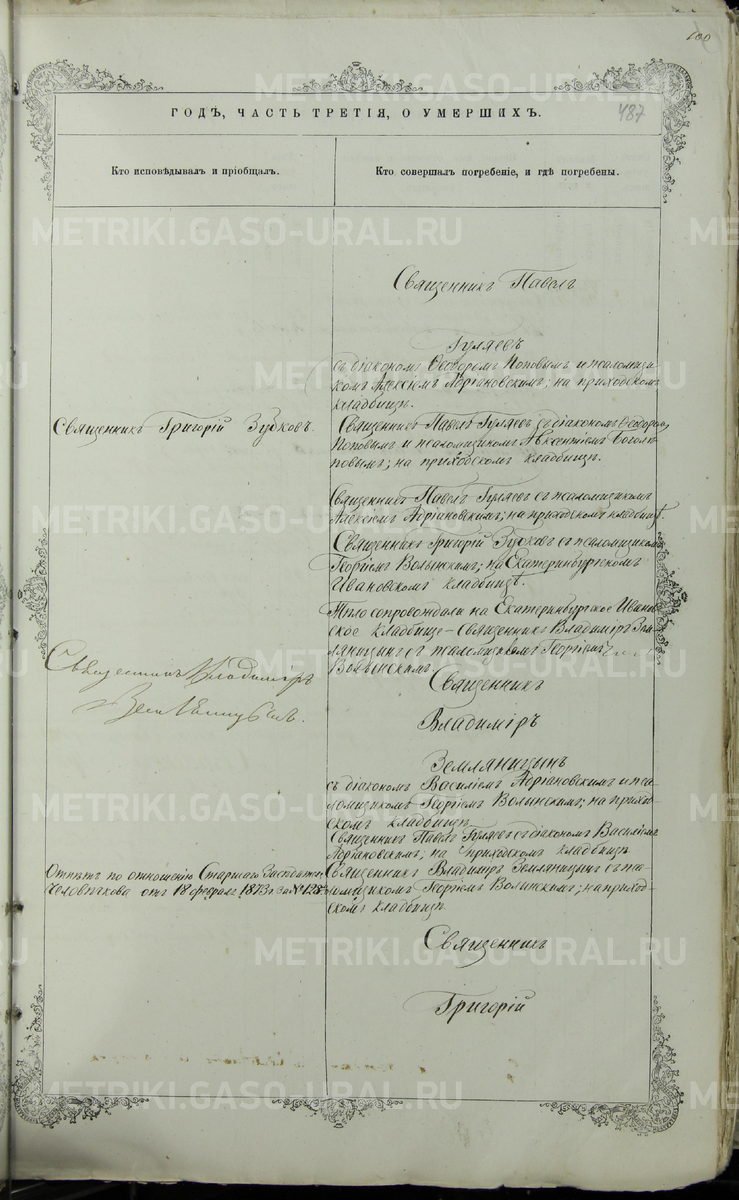 100
487
ГОДЪ, ЧАСТЬ ТРЕТІЯ, О УМЕРШИХЪ.
Кто исповѣдывалъ и пріобщалъ.
Кто совершалъ погребеніе, и гдѣ погребены.
Священникъ Павелъ
Гуляевъ
съ діакономъ Ѳеодоромъ Поповымъ и псаломщи-
комъ Алексѣемъ Адріановскимъ; на приходскомъ
кладбищѣ.
Священникъ Григорій Зубковъ.
Священникъ Павелъ Гуляевъ съ діакономъ Ѳеодоромъ
Поповымъ и псаломщикомъ Авксентіемъ Боголе-
повымъ; на приходскомъ кладбищѣ.
Священникъ Павелъ Гуляевъ съ псаломщикомъ
Алексѣемъ Адріановскимъ; на приходскомъ кладбищѣ.
Священникъ Григорій Зубковъ съ псаломщикомъ
Георгіемъ Волынскимъ; на Екатеринбургскомъ
Ивановскомъ кладбищѣ.
Тѣло сопровождали на Екатеринбургское Иванов-
ское кладбище – священникъ Владиміръ Зем-
ляницынъ съ псаломщикомъ Георгіемъ
Волынскимъ.
Священникъ Владиміръ
Земляницынъ.
Священникъ
Владиміръ
Земляницынъ
съ діакономъ Василіемъ Адріановскимъ и пса-
ломщикомъ Георгіемъ Волынскимъ; на приход-
скомъ кладбищѣ
Священникъ Павелъ Гуляевъ съ діакономъ Василіемъ
Адріановскимъ; на приходскомъ кладбищѣ
Отпѣтъ по отношенію Старшаго
отъ 18 февраля 1873 г за № 128
Священникъ Владиміръ Земляницинъ съ пса-
ломщикомъ Георгіемъ Волынскимъ; на приход-
скомъ кладбищѣ
Священникъ
Григорій
METRIKI.GASO-URAL.RU